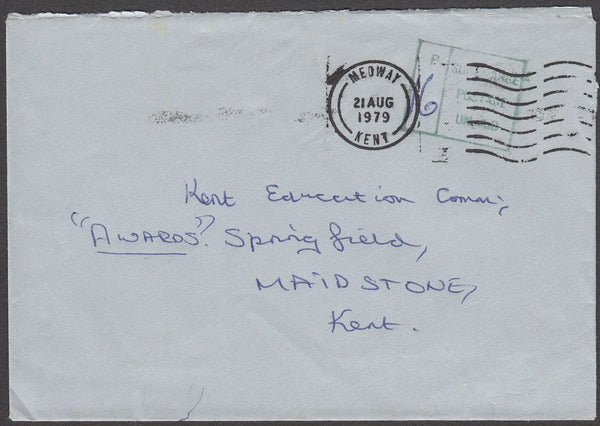 MEDWAY
21 AUG
1979
KENT
P
POSTAGE
Kent Education Comm;,
"AWARDS". Springfield,
MAIDSTONE,
Kent.